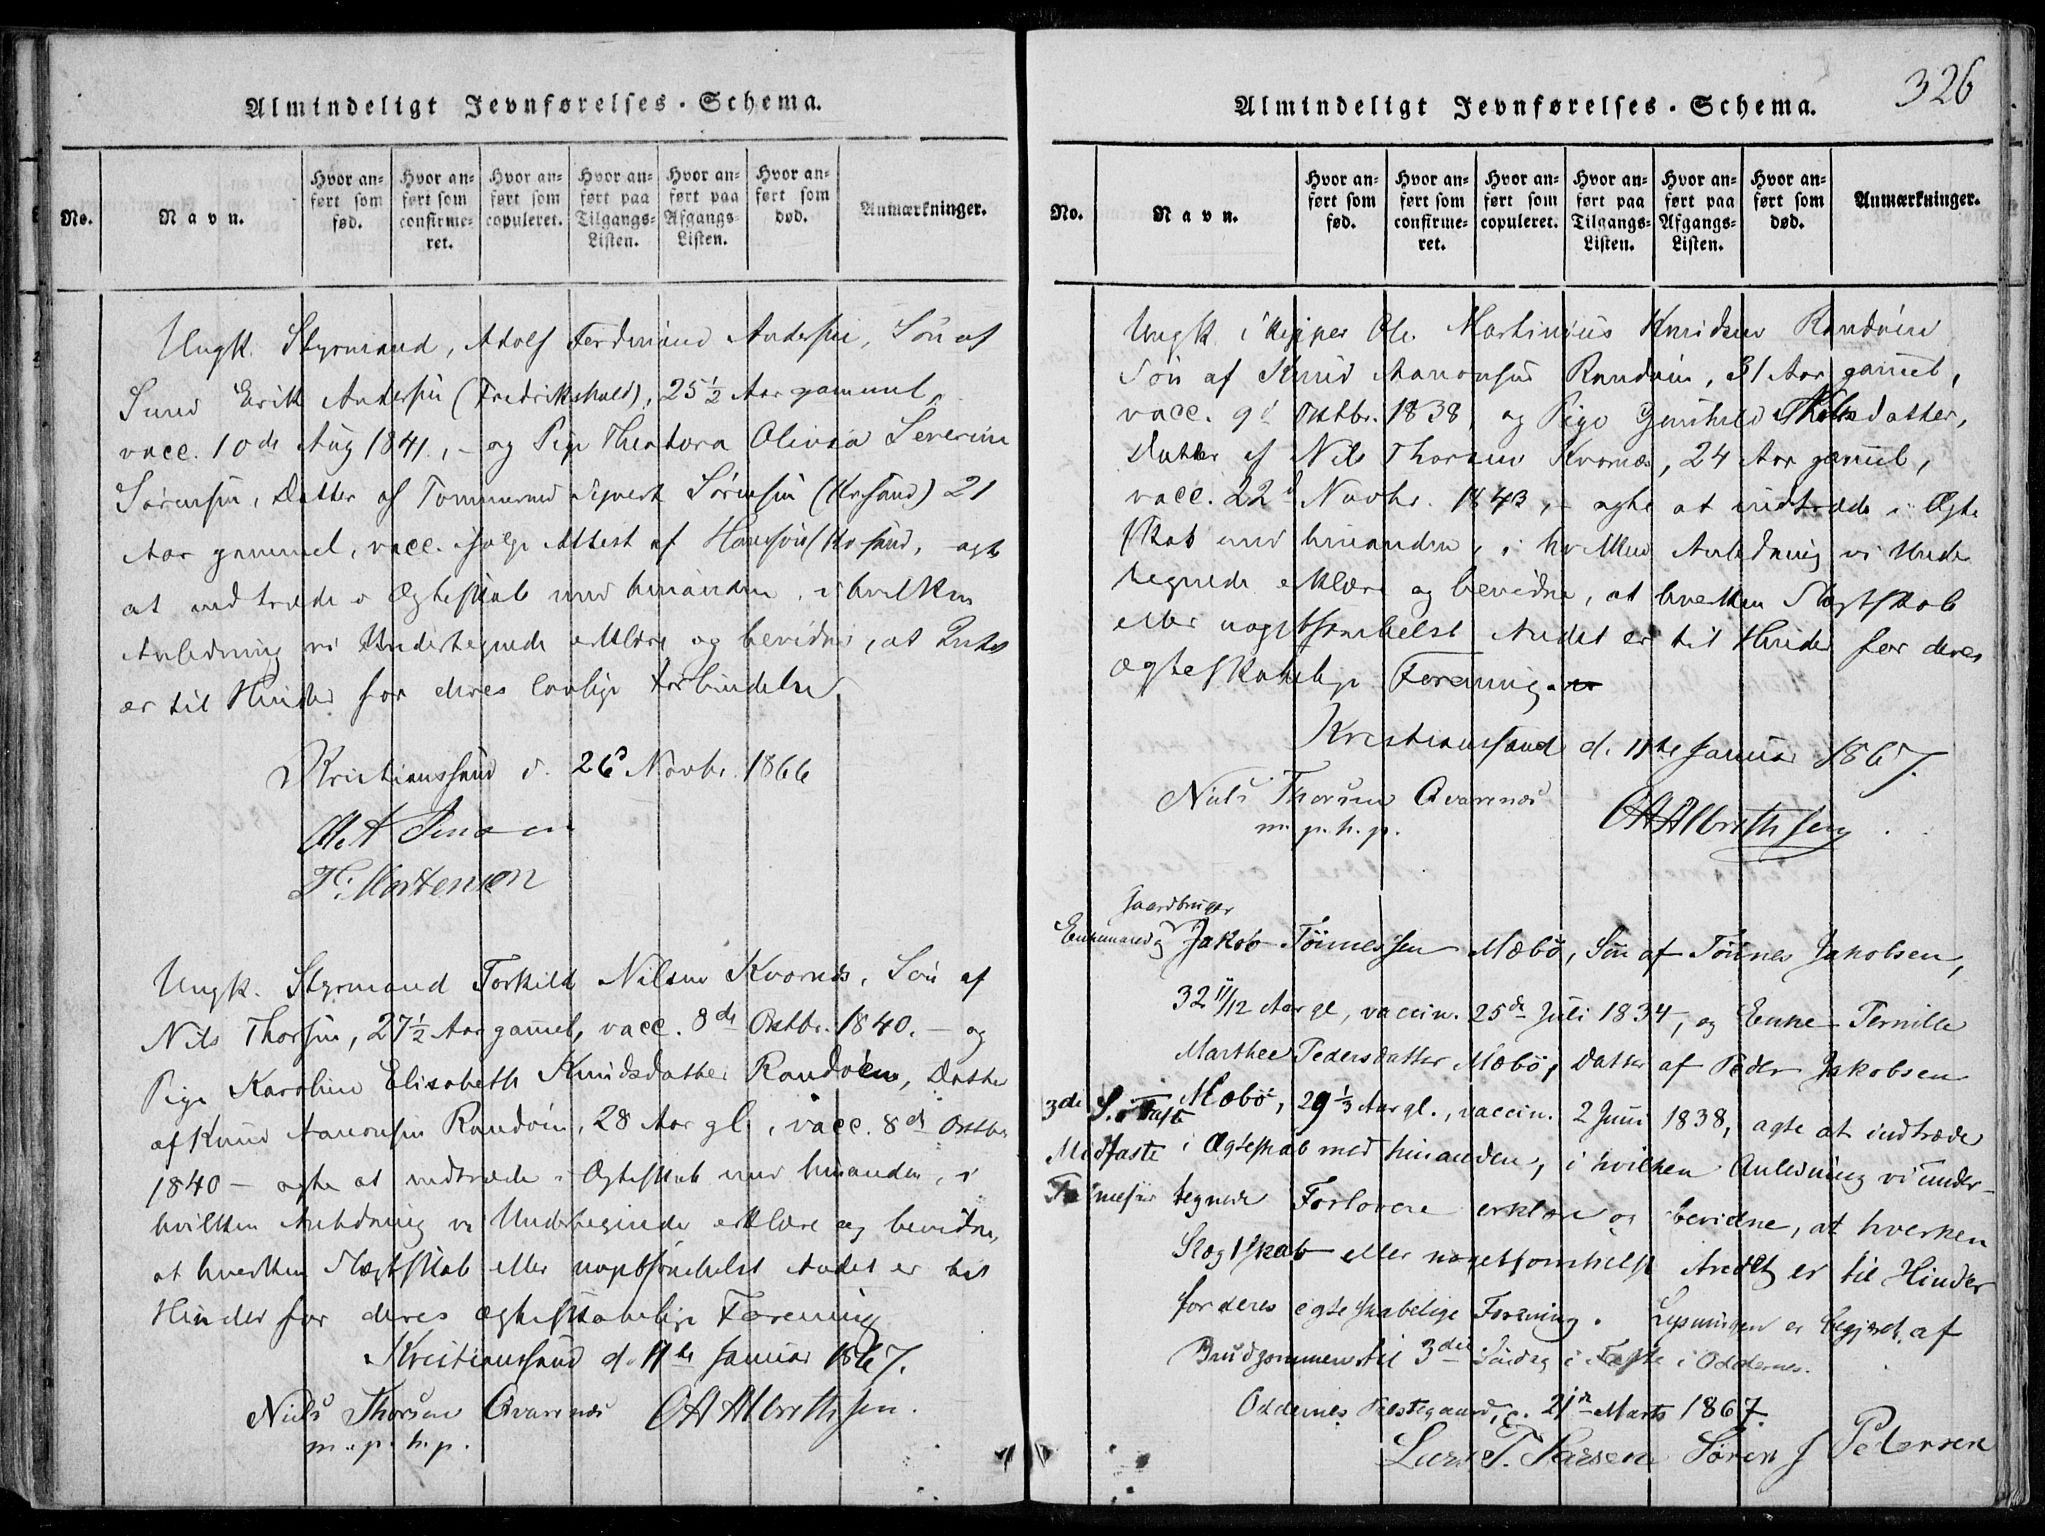 Almindeligt Jevnførelses-Schema.
No.
Navn.
Hvor anført som fød.
Hvor anført som confirmeret.
Hvor anført som copuleret.
Hvor anført paa Tilgangs-Listen.
Hvor anført paa Afgangs-Listen.
Hvor anført som død.
Anmærkninger.
Ungk. Styrmand, Adolf Ferdinand Andersen, Søn af
Erik Andersen (Fredrikshald), 25 1/2 Aar gammel,
vacc. 10de Aug 1841, – og Pige Theodora Olivia Severine
Sørensen, Datter af Tømmermd Sivert Sørensen (Krsand) 21
Aar gammel, vacc. ifølge Attest af Hanson Krsand, – agte
at indtræde i Ægteskab med hinanden, i hvilken
Anledning vi Undertegnede erklære og bevidne, at Intet
er til Hinder for deres lovlige Forbindelse.
Kristianssand d. 26d Novbr. 1866
T. Mortensen
Ungk. Styrmand Torkild Nilsen Kvarnes, Søn af
Nils Thorsen, 27 1/2 Aar gammel, vacc. 8de Oktbr. 1840. – og
Pige Karoline Elisabeth Knudsdatter Randøen, Datter
af Knud Aanonsen Randøen, 28 Aar gl., vacc. 8de Oktbr
1840 – agte at indtræde i Ægteskab med hinanden, i
hvilken Anledning vi Undertegnede erklære og bevidne,
at hverken Slægtskab eller nogetsomhelst Andet er til
Hinder for deres ægteskabelige Forening
Kristianssand d. 11te Januar 1867.
Niels Thorsen Qvarenæs OAAlbrethsen.
m. p. h. p.
326
Almindeligt Jevnførelses-Schema.
No.
Navn.
Hvor anført som fød.
Hvor anført som confirmeret.
Hvor anført som copuleret.
Hvor anført paa Tilgangs-Listen.
Hvor anført paa Afgangs-Listen.
Hvor anført som død.
Anmærkninger.
Ungk. Skipper Ole Martinius Knudsen Randøen
Søn af Knud Aanonsen Randøen, 31 Aar gammel,
vacc. 9d Oktbr. 1838, og Pige Gunhild Nilsdatter,
Datter af Nils Thorsen Kvarnes, 24 Aar gammel,
vacc. 22d Novbr. 1843, – agte at indtræde i Ægte
skab med hinanden, i hvilken Anledning vi Under
tegnede erklære og bevidne, at hverken Slægtskab
eller nogetsomhelst Andet er til Hinder for deres
ægteskabelige Forening.
Kristianssand d. 11te Januar 1867.
Niels Thorsen Qvarenæs OAAlbrethsen
m. p. h. p.
Gaardbruger
Enkemand Jakob Tønnessen Mæbø, Søn af Tønnes Jakobsen,
32 11/12 Aar gl, vaccin. 25de Juli 1834, og Enke Pernille
Marthee Pedersdatter Mæbø, Datter af Peder Jakobsen
3die S. i Faste Mæbø, 29 1/3 Aar gl., vaccin. 2 Juni 1838, agte at indtræde
Midfaste i Ægteskab med hinanden, i hvilken Anledning vi under-
tegnede Forlovere erklære og bevidne, at hverken
Slægtskab eller nogetsomhelst Andet er til Hinder
for deres egteskabelige Forening. Lysningen er begjært af
Brudgommen til 3die Søndag i Faste i Oddernes.
Oddernes Præstegaard, d. 21de Marts 1867.
Lars T. Larsen Søren J Petersen